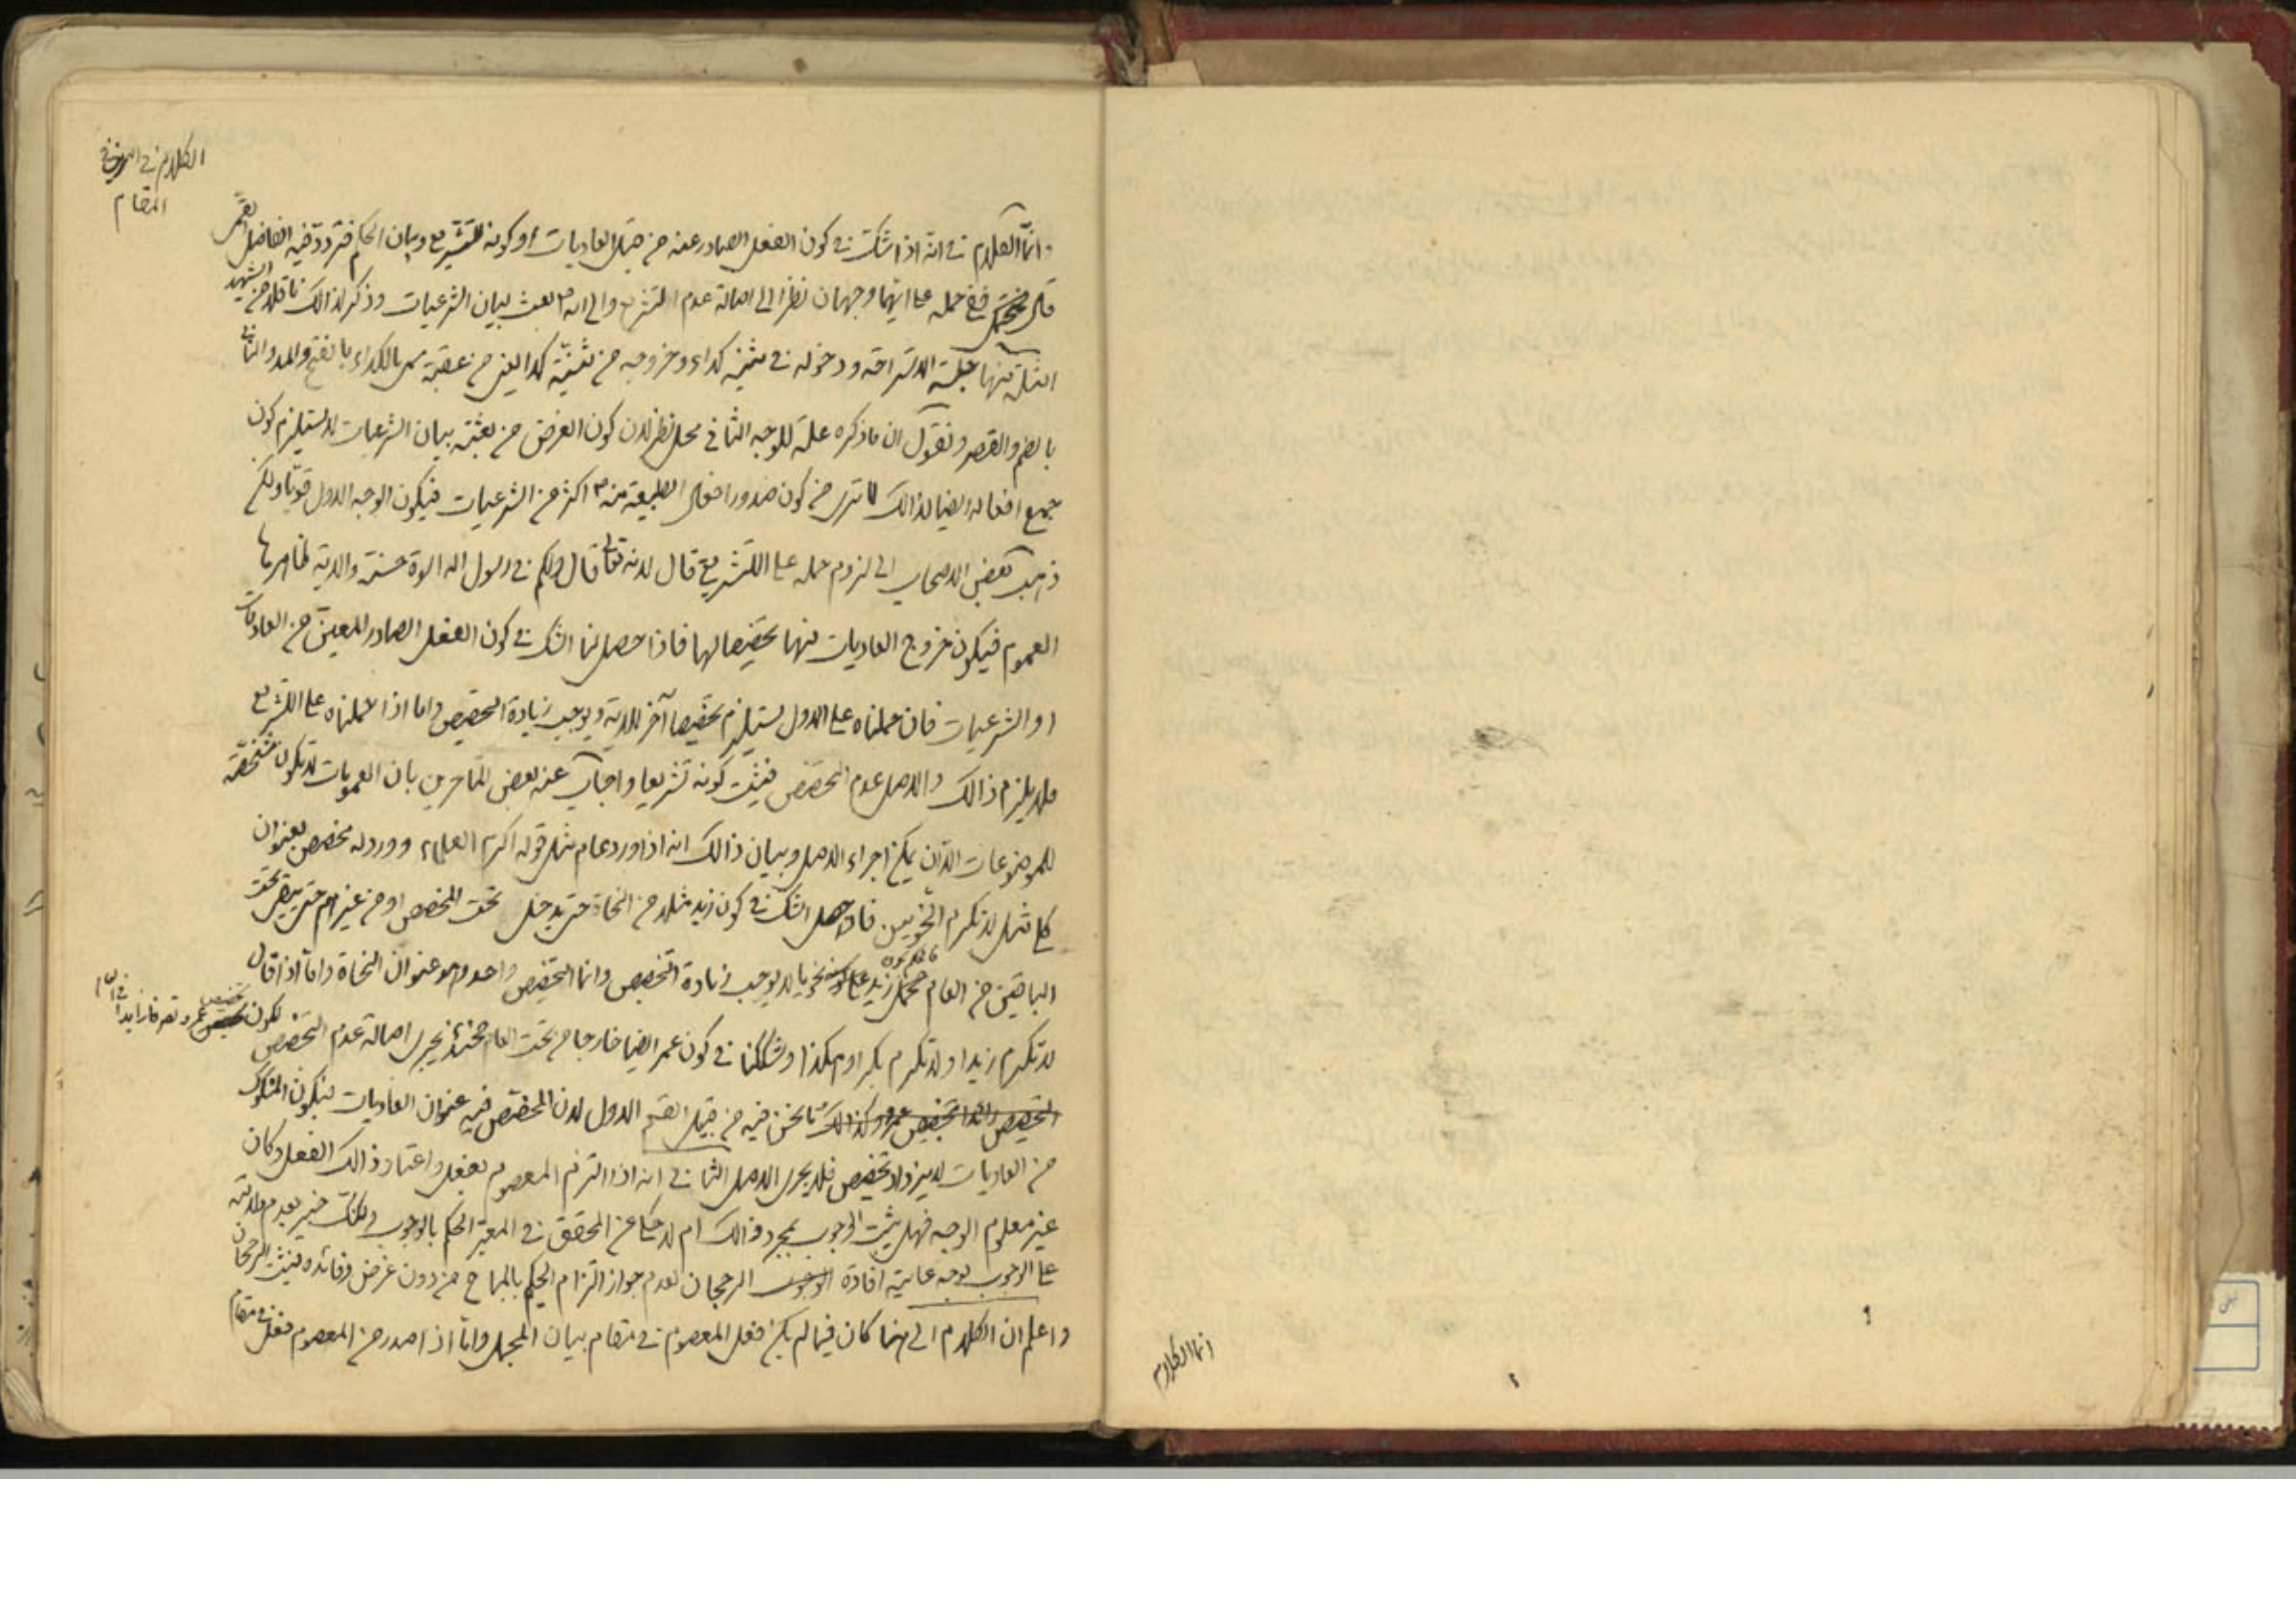 انما الكلام
الكلام في
المقام
وانما الكلام في انه اذا شك في كون الفعل الصادر عنه من قبيل العاديات او كونه للتشريع وبيان الحكم فتردد فيه الفاضل القمي
قال ففي حمله على ايهما وجهان نظرا الى اصالة عدم التشريع والى انه ص بعث لبيان الشرعيات وذكر لذالك ما قاله الشهيد
امثلة منها جلسة الاستراحة ودخوله في ثنية كداء وخروجه من ثنية كدا اعني من عقبة بالكداء بالفتح والمد والثاني
بالضم والقصر ونقول ان ما ذكره علة للوجه الثاني محل نظر لان كون الغرض من بعثته بيان الشرعيات لا يستلزم كون
جميع افعاله ايضا لذالك لما ترى من كون صدور افعال الطبيعية منه ص اكثر من الشرعيات فيكون الوجه الاول قويا ولكن
ذهب بعض الاصحاب الى لزوم حمله على التشريع قال لانه تعالى قال ولكم في رسول الله اسوة حسنة والاية ظاهرها
العموم فيكون خروج العاديات منها تخصيصا لها فاذا حصل لنا الشك في كون الفعل الصادر المعين من العاديات
او الشرعيات فان حملناه على الاول يستلزم تخصيصا آخر للاية ويوجب زيادة التخصيص واما اذا حملناه على التشريع
فلا يلزم ذالك والاصل عدم التخصيص فيثبت كونه تشريعا واجاب عنه بعض المتاخرين بان العمومات لا تكون مشخصة
للموضوعات الا ان يمكن اجراء الاصل وبيان ذالك انه اذا ورد عام مثل قوله اكرم العلماء وورد له مخصص بعنوان
كلي مثل لا تكرم النحويين فاذا حصل الشك في كون زيد مثلا من النحاة حتى يدخل تحت المخصص او من غيرهم حتى يبقى تحت
الباقين من العام فحمل زيد على كونه نحويا لا يوجب زيادة التخصيص وانما التخصيص واحد وهو عنوان النحاة واما اذا قال
لا تكرم زيدا ولا تكرم بكرا وهكذا وشككنا في كون عمر ايضا خارجا من تحت العام فحينئذ يجري اصالة عدم التخصيص لكون تخصيص عمرو تصرفا زايدا في العام
وكذالك ما نحن فيه من قبيل القسم الاول لان المخصص فيه عنوان العاديات فبكون المشكوك
من العاديات لا يزداد تخصيص فلا يجري الاصل الثاني انه اذا التزم المعصوم بفعل واعتاد ذالك الفعل وكان
غير معلوم الوجه فهل يثبت الوجوب بمجرد ذالك ام لا حكي عن المحقق في المعتبر الحكم بالوجوب ولكنك خبير بعدم دلالته
على الوجوب بوجه غايته افادة الرجحان لعدم جواز التزام الحكيم بالمباح من دون غرض وفائدة فيثبت الرجحان
واعلم ان الكلام الى هنا كان فيما لم يكن فعل المعصوم في مقام بيان المجمل واما اذا صدر من المعصوم فعل في مقام